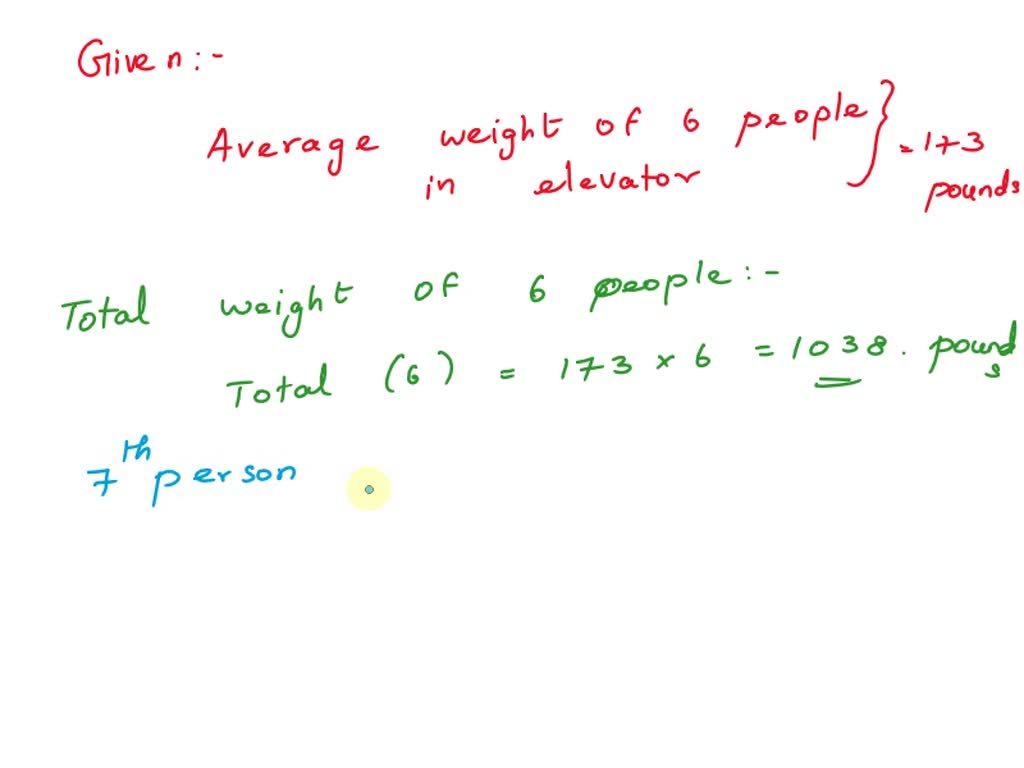 Given:-
Average weight of 6 people } = 173
in elevator pounds
Total weight of 6 people:-
Total (6) = 173 × 6 = 1038. pounds
7th person